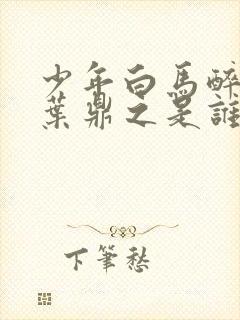 少年白馬醉
葉鼎之是誰
下筆愁